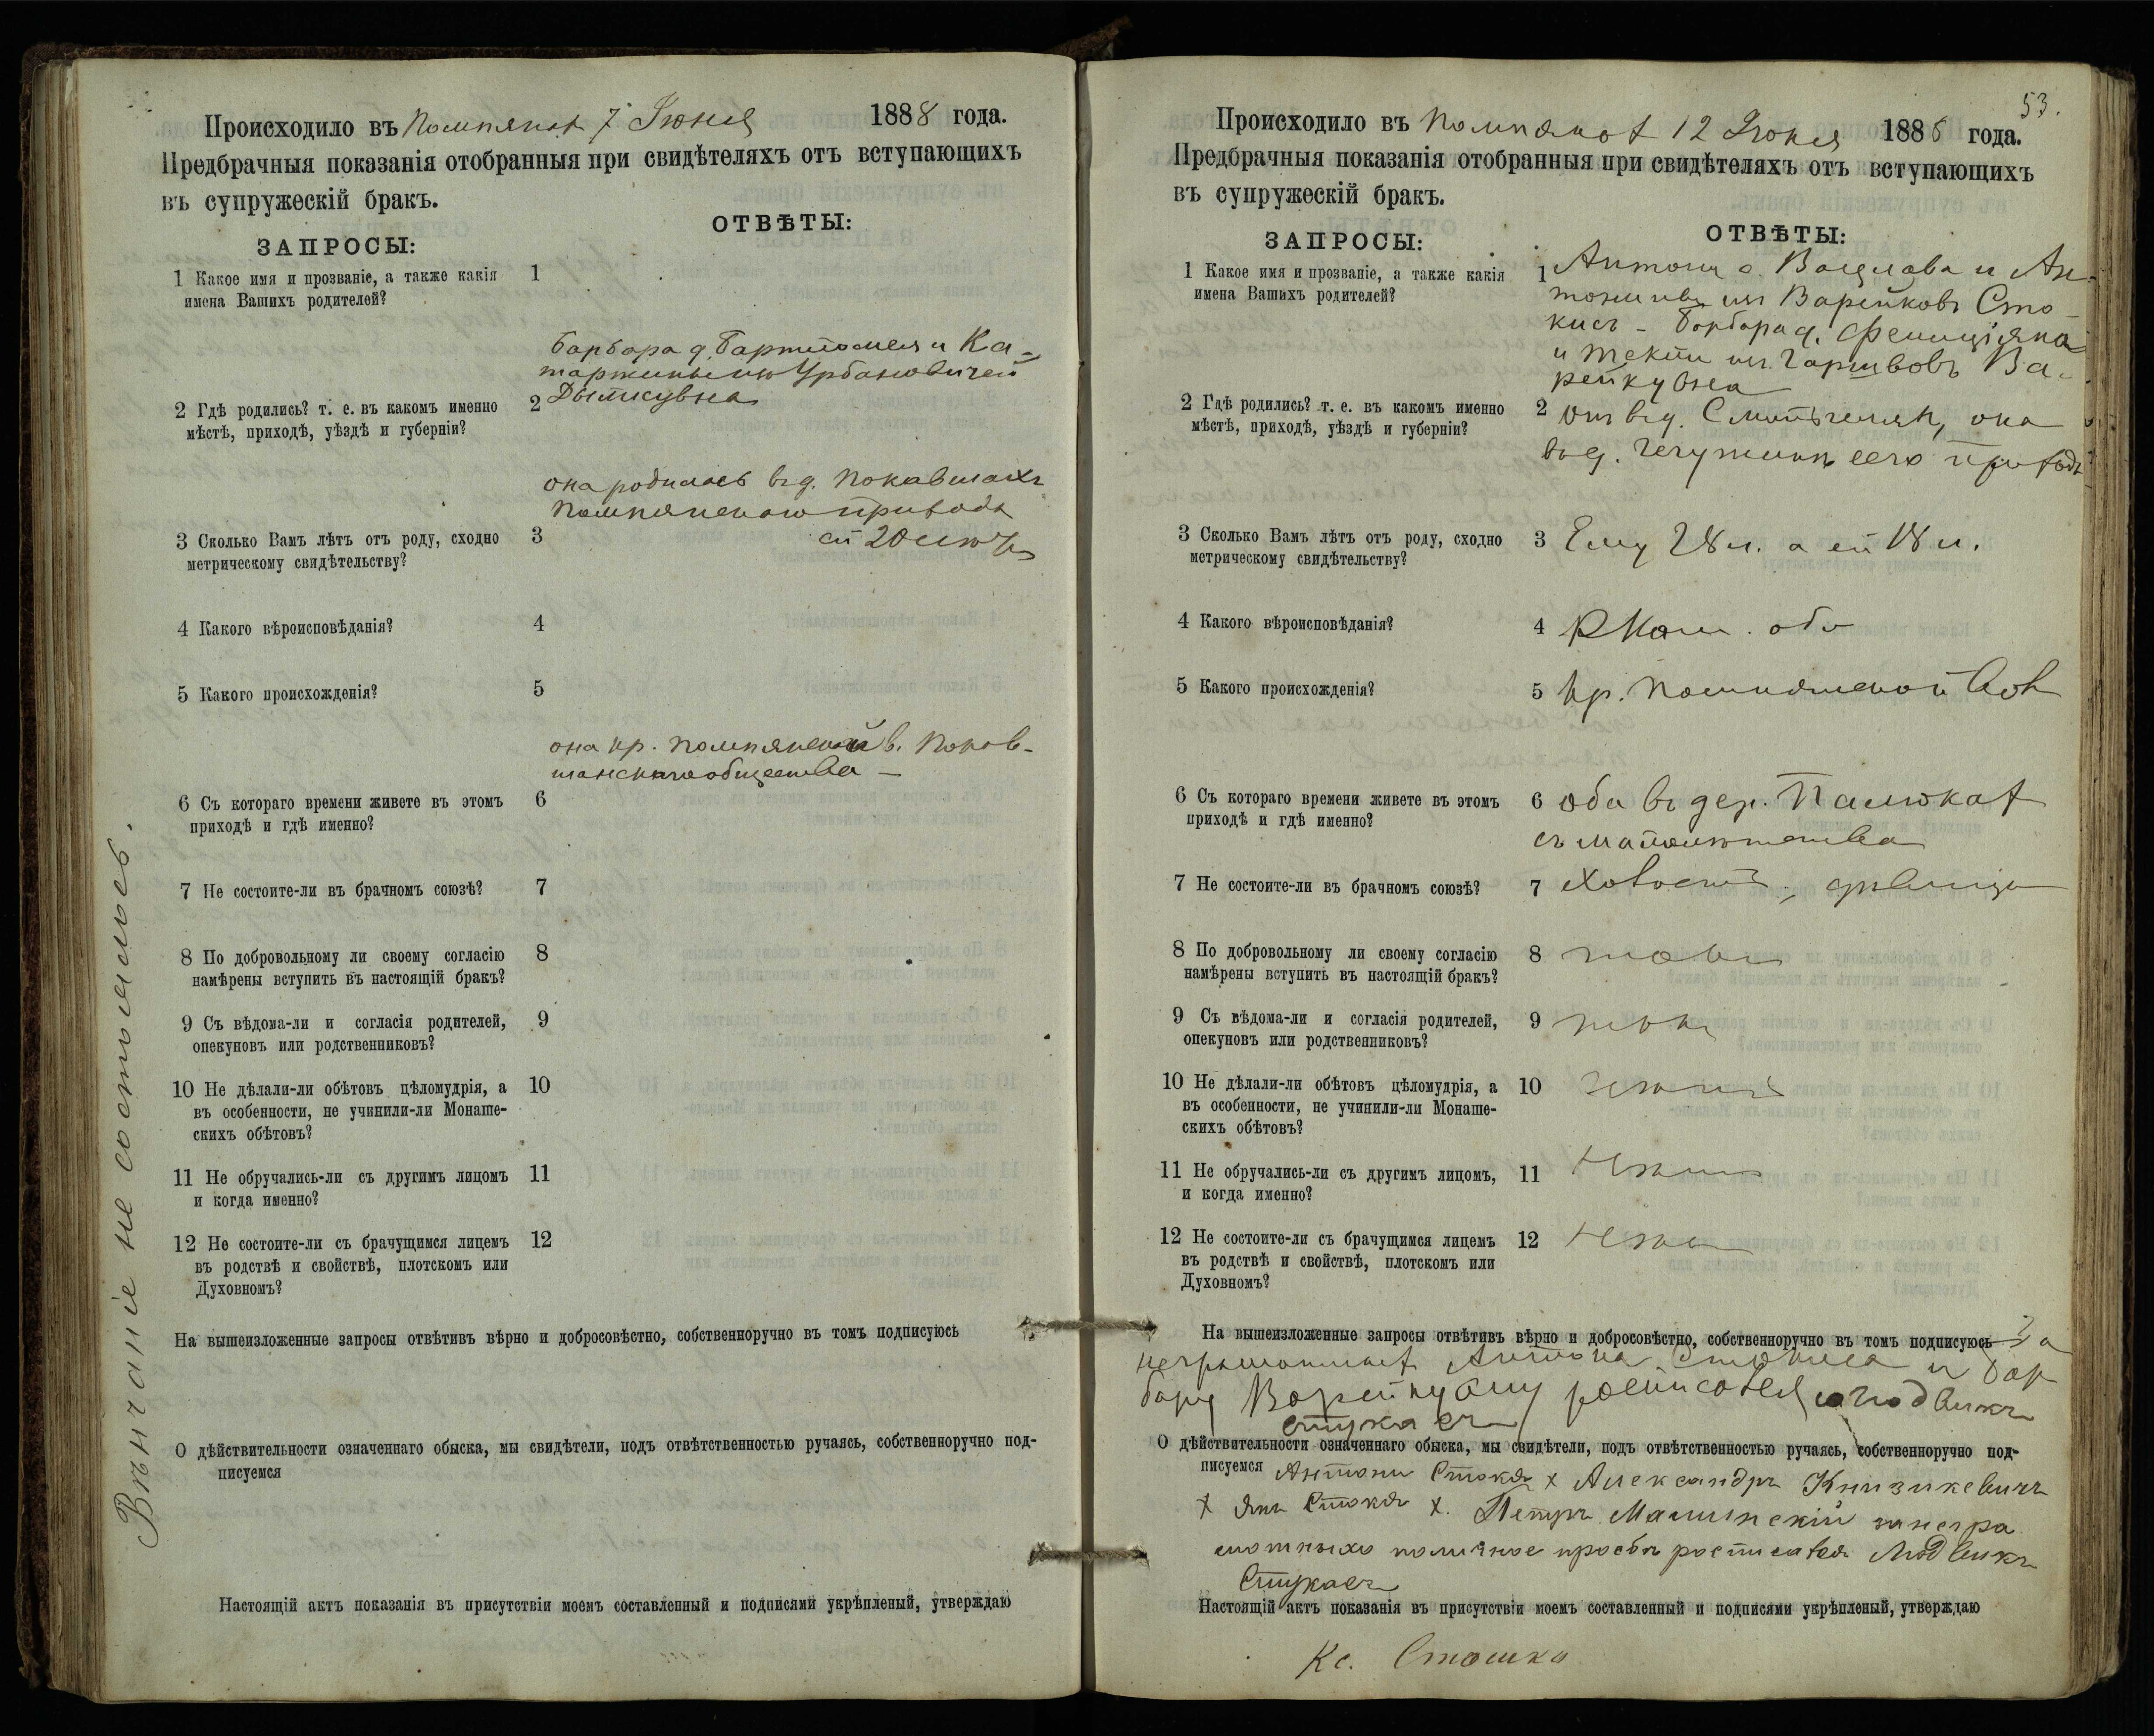 Происходило въ Помпянах 7 Іюня 1888 года.
Предбрачныя показанія отобранныя при свидѣтеляхъ отъ вступающихъ
въ супружескій бракъ.
ОТВѢТЫ:
ЗАПРОСЫ:
1 Какое имя и прозваніе, а также какія 1
имена Вашихъ родителей?
Барбара д. Бартломея и Ка-
таржины
2 Гдѣ родились? т. е. въ какомъ именно 2
мѣстѣ, приходѣ, уѣздѣ и губерніи?
она родилась въ д.
Помпянскаго прихода
3 Сколько Вамъ лѣтъ отъ роду, сходно 3 ей 20
метрическому свидѣтельству?
4 Какого вѣроисповѣданія? 4
5 Какого происхожденія? 5
она кр. Помпянской в.
общества —
6 Съ котораго времени живете въ этомъ 6
приходѣ и гдѣ именно?
7 Не состоите-ли въ брачномъ союзѣ? 7
8 По добровольному ли своему согласію 8
намѣрены вступить въ настоящій бракъ?
9 Съ вѣдома-ли и согласія родителей, 9
опекуновъ или родственниковъ?
10 Не дѣлали-ли обѣтовъ цѣломудрія, а 10
въ особенности, не учинили-ли Монаше-
скихъ обѣтовъ?
11 Не обручались-ли съ другимъ лицомъ 11
и когда именно?
12 Не состоите-ли съ брачущимся лицемъ 12
въ родствѣ и свойствѣ, плотскомъ или
Духовномъ?
На вышеизложенные запросы отвѣтивъ вѣрно и добросовѣстно, собственноручно въ томъ подписуюсь
О дѣйствительности означеннаго обыска, мы свидѣтели, подъ отвѣтственностью ручаясь, собственноручно под-
писуемся
Настоящій актъ показанія въ присутствіи моемъ составленный и подписями укрѣпленый, утверждаю
Вѣнчаніе не состоялось.
53.
Происходило въ Помпянах 12 Іюня 1888 года.
Предбрачныя показанія отобранныя при свидѣтеляхъ отъ вступающихъ
въ супружескій бракъ.
ОТВѢТЫ:
ЗАПРОСЫ:
1 Какое имя и прозваніе, а также какія 1 Антони с. Вацлава и Ан-
имена Вашихъ родителей?
тонины из Варейковъ Сто-
кисъ - Барбара д. Фелиціяна
и Текли из Ва-
рейкувна
2 Гдѣ родились? т. е. въ какомъ именно 2 он въ д. она
мѣстѣ, приходѣ, уѣздѣ и губерніи?
въ д. сего прихода
3 Сколько Вамъ лѣтъ отъ роду, сходно 3 Ему 28 л. а ей 18 л.
метрическому свидѣтельству?
4 Какого вѣроисповѣданія? 4 Р Кат. оба
5 Какого происхожденія? 5 кр. Помпянской вол
6 Съ котораго времени живете въ этомъ 6 оба въ дер.
приходѣ и гдѣ именно?
съ малолѣтства
7 Не состоите-ли въ брачномъ союзѣ? 7 Холост, дѣвица
8 По добровольному ли своему согласію 8 такъ
намѣрены вступить въ настоящій бракъ?
9 Съ вѣдома-ли и согласія родителей, 9 такъ
опекуновъ или родственниковъ?
10 Не дѣлали-ли обѣтовъ цѣломудрія, а 10
въ особенности, не учинили-ли Монаше-
скихъ обѣтовъ?
11 Не обручались-ли съ другимъ лицомъ, 11
и когда именно?
12 Не состоите-ли съ брачущимся лицемъ 12
въ родствѣ и свойствѣ, плотскомъ или
Духовномъ?
На вышеизложенные запросы отвѣтивъ вѣрно и добросовѣстно, собственноручно въ томъ подписуюсь За
неграмотных Антона Стокиса и Бар
бару Варейкувну росписался Людвикъ
Стукасъ
О дѣйствительности означеннаго обыска, мы свидѣтели, подъ отвѣтственностью ручаясь, собственноручно под-
писуемся Антони Стокъ х Александръ Книзикевичъ
х Янъ Стокъ х. Петръ Малинскій за негра
мотныхъ по личной просьбѣ росписался Людвикъ
Стукасъ
Настоящій актъ показанія въ присутствіи моемъ составленный и подписями укрѣпленый, утверждаю
Кс.